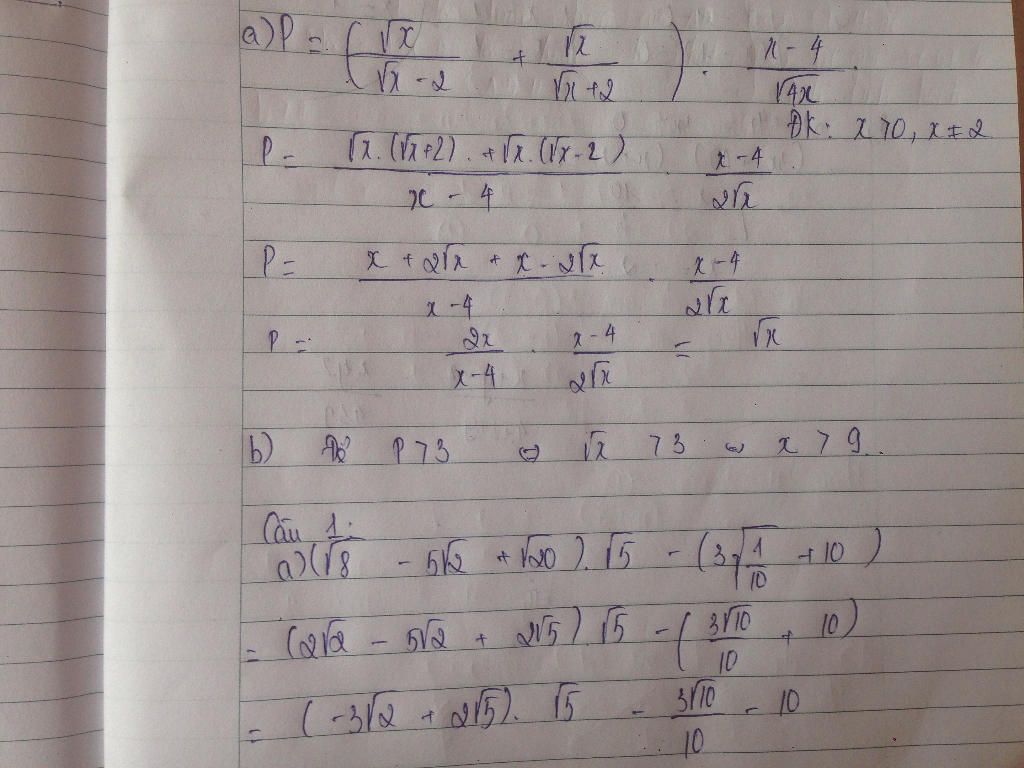 a) P = ( √x / (√x - 2) + √x / (√x + 2) ) . (x - 4) / √4x .
ĐK: x > 0, x ≠ 2
P = (√x.(√x+2). + √x.(√x-2)) / (x - 4) . (x - 4) / 2√x .
P = (x + 2√x + x - 2√x) / (x - 4) . (x - 4) / 2√x
P = 2x / (x - 4) . (x - 4) / 2√x = √x
b) P > 3 ⇔ √x > 3 ⇔ x > 9.
Câu 1:
a) (√8 - 5√2 + √20).√5 - (3√(1/10) + 10)
= (2√2 - 5√2 + 2√5).√5 - (3√10/10 + 10)
= (-3√2 + 2√5).√5 - 3√10/10 - 10